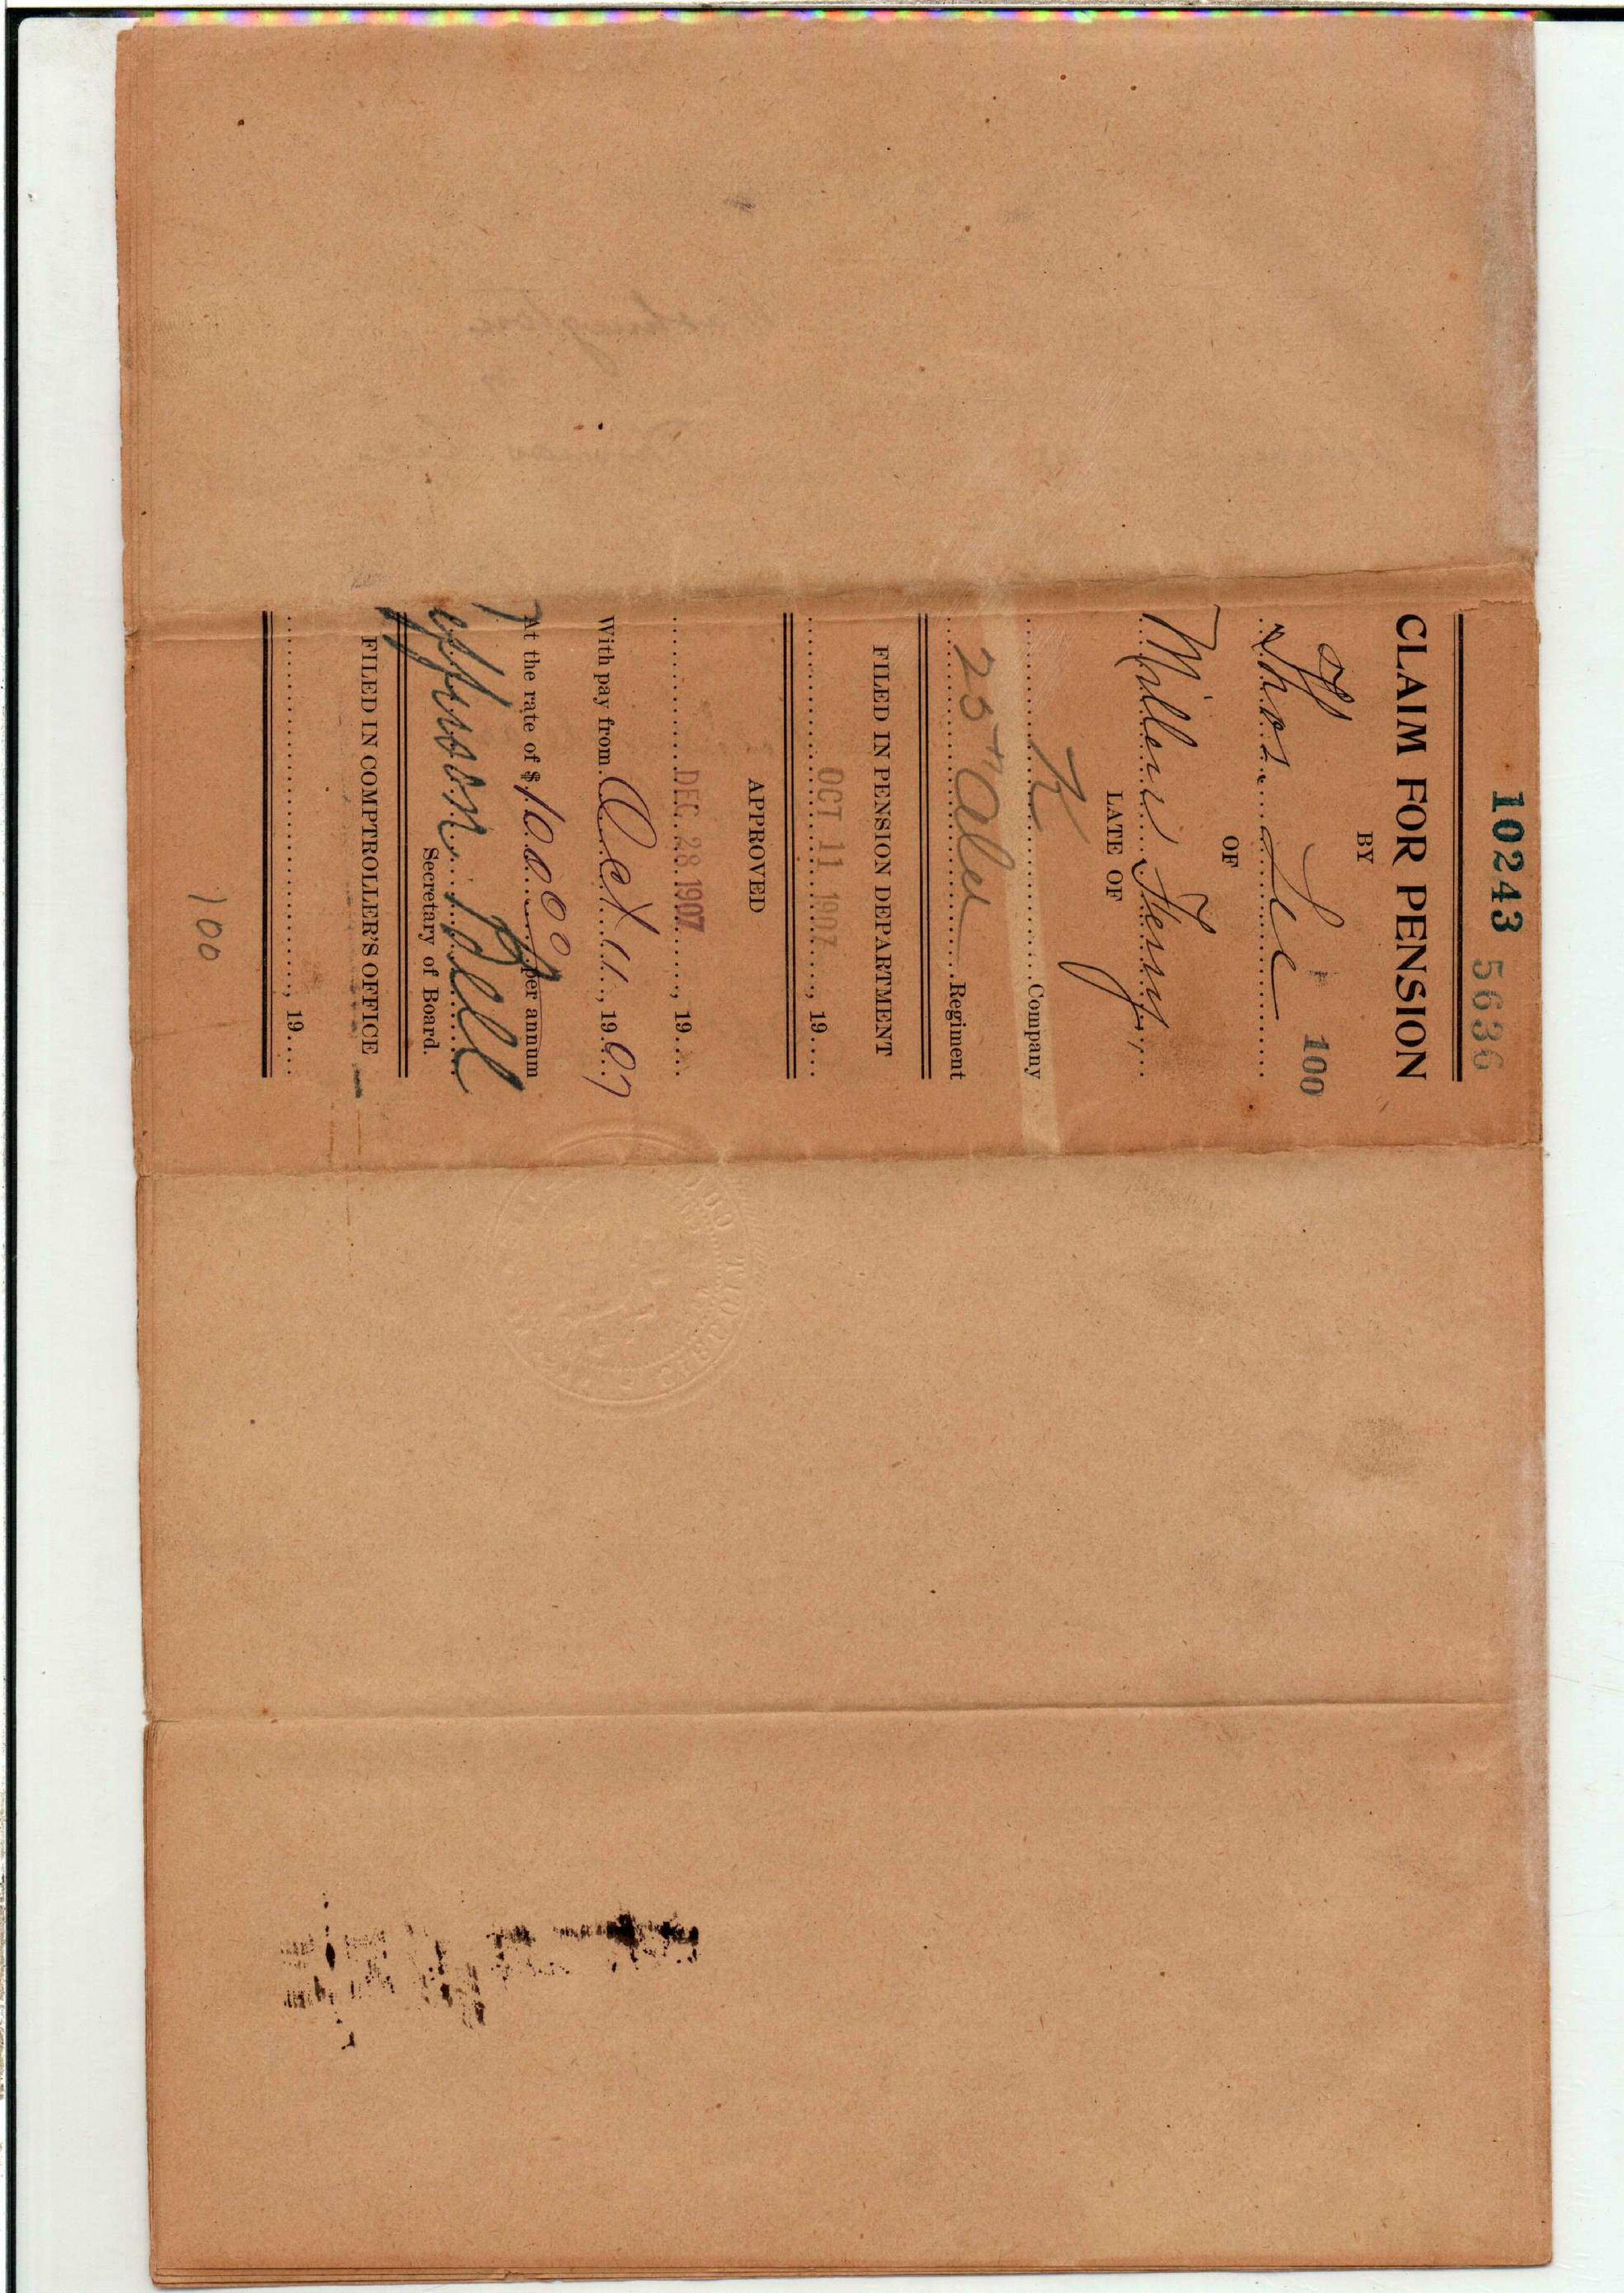 10243 5636
CLAIM FOR PENSION
BY
100
Thos. Lee
OF
Millers Ferry,
LATE OF
K Company
25th Ala Regiment
FILED IN PENSION DEPARTMENT
OCT 11 1907, 19
APPROVED
DEC 28 1907, 19
With pay from Oct 11, 1907
At the rate of $100.00 per annum
Jefferson Bell
Secretary of Board.
FILED IN COMPTROLLER'S OFFICE
, 19
100